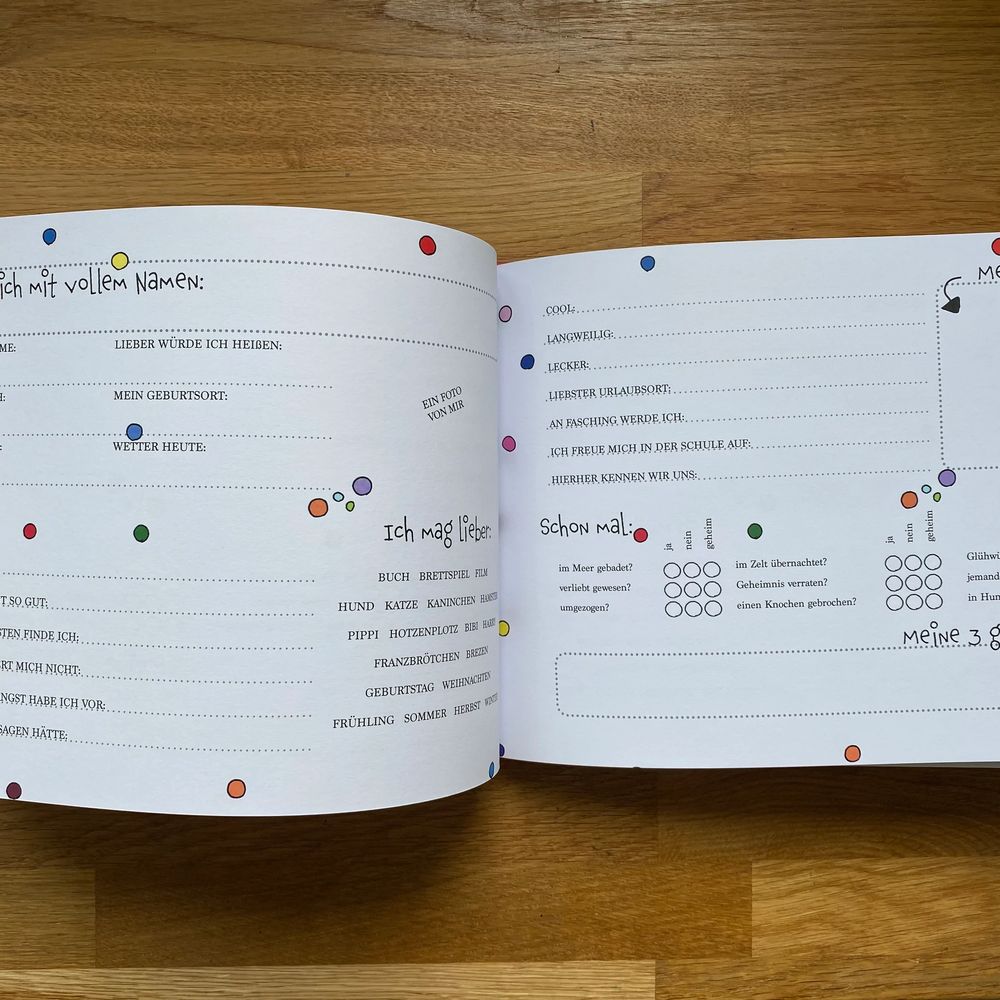 ich mit vollem Namen:
ME: LIEBER WÜRDE ICH HEIßEN:
H: MEIN GEBURTSORT:
WETTER HEUTE:
EIN FOTO
VON MIR
Ich mag lieber:
BUCH BRETTSPIEL FILM
HUND KATZE KANINCHEN HAMSTER
PIPPI HOTZENPLOTZ BIBI HARRY
FRANZBRÖTCHEN BREZEN
GEBURTSTAG WEIHNACHTEN
FRÜHLING SOMMER HERBST WINTER
T SO GUT:
STEN FINDE ICH:
ERT MICH NICHT:
ANGST HABE ICH VOR:
SAGEN HÄTTE:
COOL:
LANGWEILIG:
LECKER:
LIEBSTER URLAUBSORT:
AN FASCHING WERDE ICH:
ICH FREUE MICH IN DER SCHULE AUF:
HIERHER KENNEN WIR UNS:
ME
Schon mal:
ja nein geheim
ja nein geheim
im Meer gebadet? im Zelt übernachtet? Glühwü
verliebt gewesen? Geheimnis verraten? jemand
umgezogen? einen Knochen gebrochen? in Hun
Meine 3 g